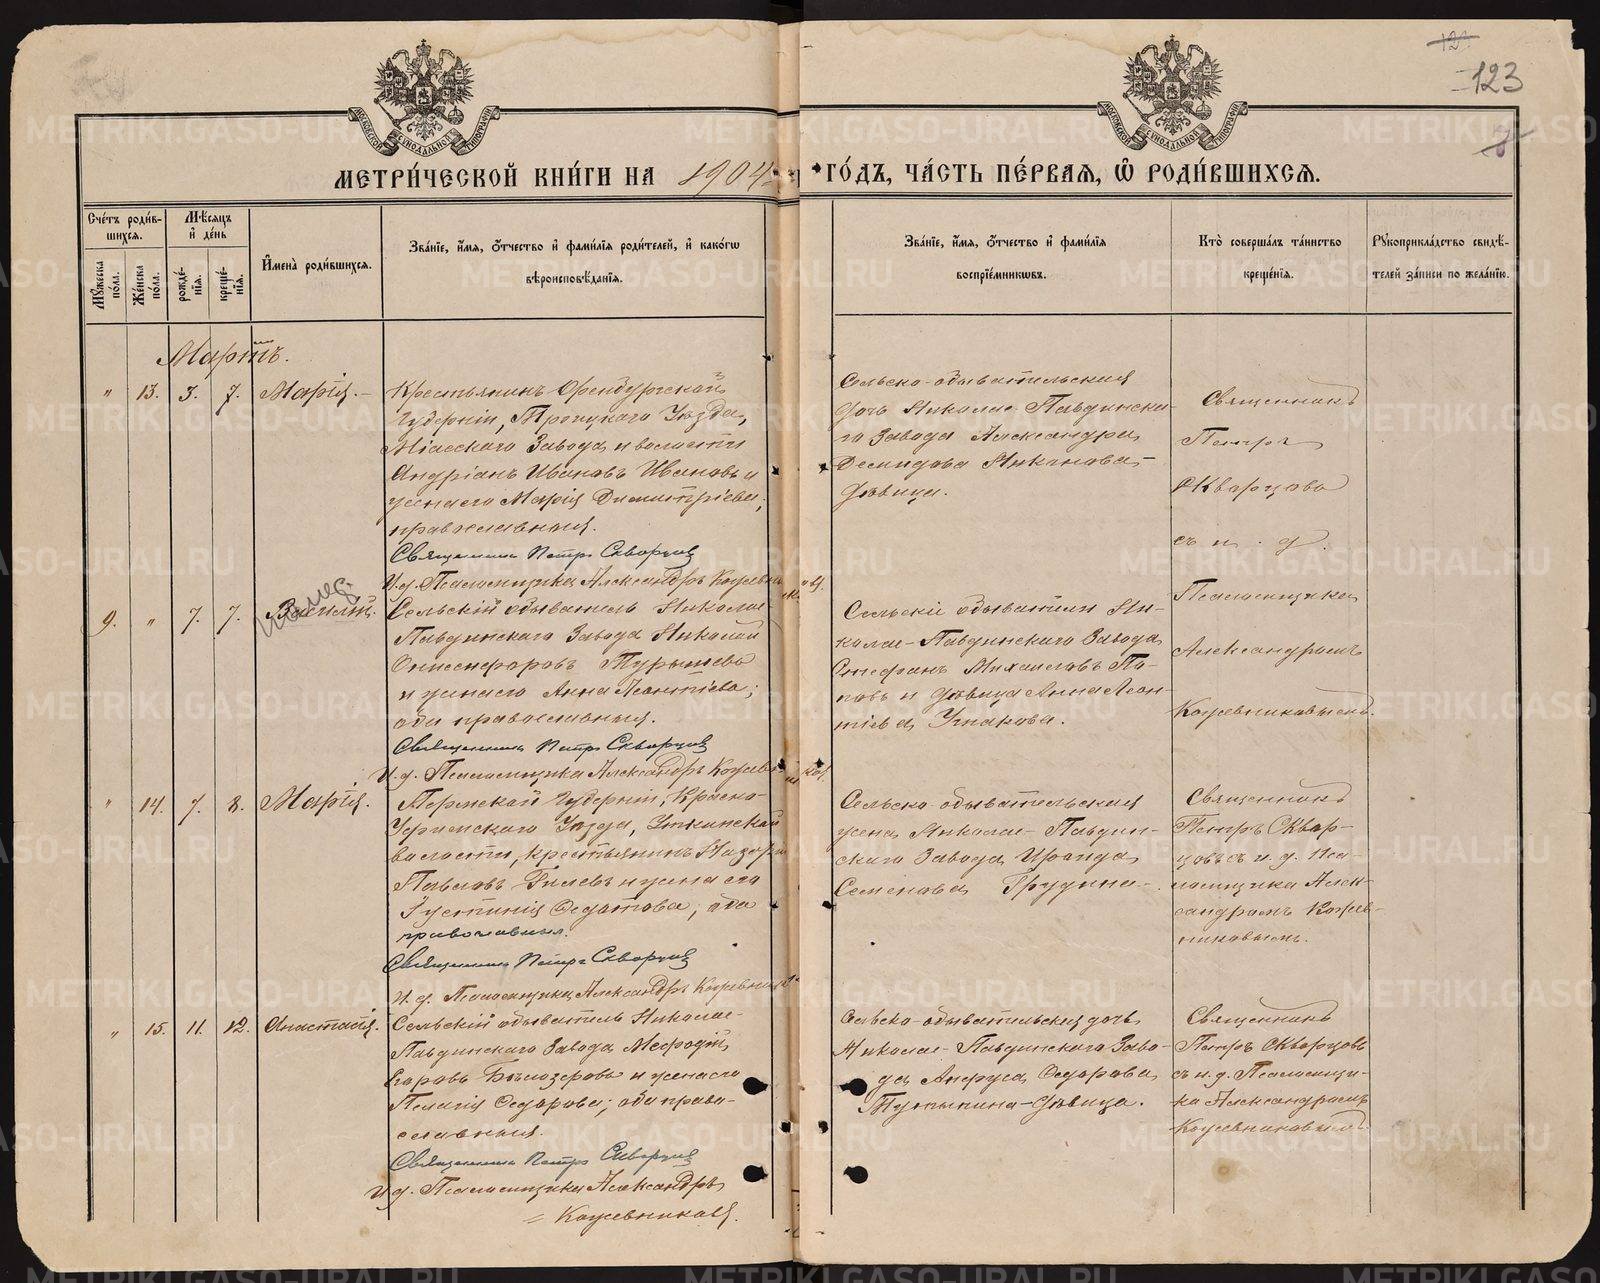 123
МЕТРИ́ЧЕСКОЙ КНИ́ГИ НА 1904 ГО́ДЪ, ЧА́СТЬ ПЕ́РВАЯ, Ѡ҆ РОДИ́ВШИХСЯ.
Сче́тъ роди́в-
шихся.
Мꙋжеска
по́ла.
Же́нска
по́ла.
Мѣ́сяцъ
и҆ де́нь
рожде́-
нїя.
креще́-
нїя.
И҆мена̀ роди́вшихся.
Зва́нїе, и҆́мя, ѻ҆́тчество и҆ фами́лїя роди́телей, и҆ како́гѡ
вѣроисповѣ́данїя.
Зва́нїе, и҆́мя, ѻ҆́тчество и҆ фами́лїя
воспрїе́мникѡвъ.
Кто̀ соверша́лъ та́инство
креще́нїя.
Рꙋкоприкла́дство свидѣ́-
телей за́писи по жела́нїю.
Мартъ.
" 13. 3. 7. Марія.
Крестьянинъ Оренбургской
Губерніи, Троицкаго Уѣзда,
Міасскаго Завода и волости
Андріанъ Ивановъ Ивановъ и
жена его Марія Димитріева,
православныя.
Священникъ Петръ Скворцов
И. д. Псаломщика Александръ Кожевников.
Сельско-обывательская
дочь Николае-Павдинска-
го Завода Александра
Демидова
дѣвица.
Священникъ
Петръ
Скварцовъ
съ и. д.
Псаломщика
Александромъ
Кожевниковымъ.
9. " 7. 7. Василій.
Сельскій обыватель Николае-
Павдинскаго Завода Николай
Онисифоровъ
и жена его Анна Леонтіева;
оба православныя.
Священникъ Петръ Скворцов
И. д. Псаломщика Александръ Кожевников.
Сельскіе обыватели Ни-
колае-Павдинскаго Завода
Стефанъ Михаиловъ По-
повъ и дѣвица Анна Леон-
тіева Ушакова.
" 14. 7. 8. Марія.
Пермской Губерніи, Красно-
Уфимскаго Уѣзда, Уткинской
волости, крестьянинъ Назаръ
Павловъ и жена его
Іустинія Федотова; оба
православныя.
Священникъ Петръ Скворцов
И. д. Псаломщика Александръ Кожевников
Сельско-обывательская
жена Николае-Павдин-
скаго Завода Ираида
Семенова Грудина.
Священникъ
Петръ Сквар-
цовъ съ и. д. Пса-
ломщика Алек-
сандромъ Кожев-
никовымъ.
" 15. 11. 12. Анастасія.
Сельскій обыватель Николае-
Павдинскаго Завода Мефодій
Егоровъ Бѣлозеровъ и жена его
Пелагія Федорова; оба право-
славныя.
Священникъ Петръ Скворцов
И. д. Псаломщика Александръ
Кожевников.
Сельско-обывательская дочь
Николае-Павдинскаго Заво-
да Анфуса Федорова
дѣвица.
Священникъ
Петръ Скварцовъ
съ и. д. Псаломщи-
ка Александромъ
Кожевниковымъ.
METRIKI.GASO-URAL.RU